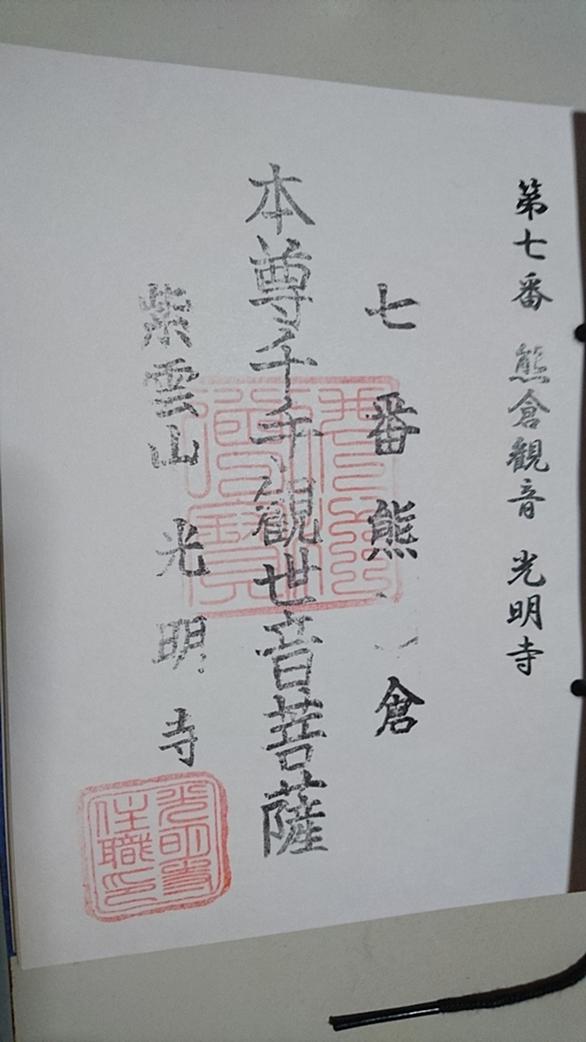 第七番 熊倉観音 光明寺
七番熊倉
本尊千手観世音菩薩
紫雲山光明寺
光明寺
住職印